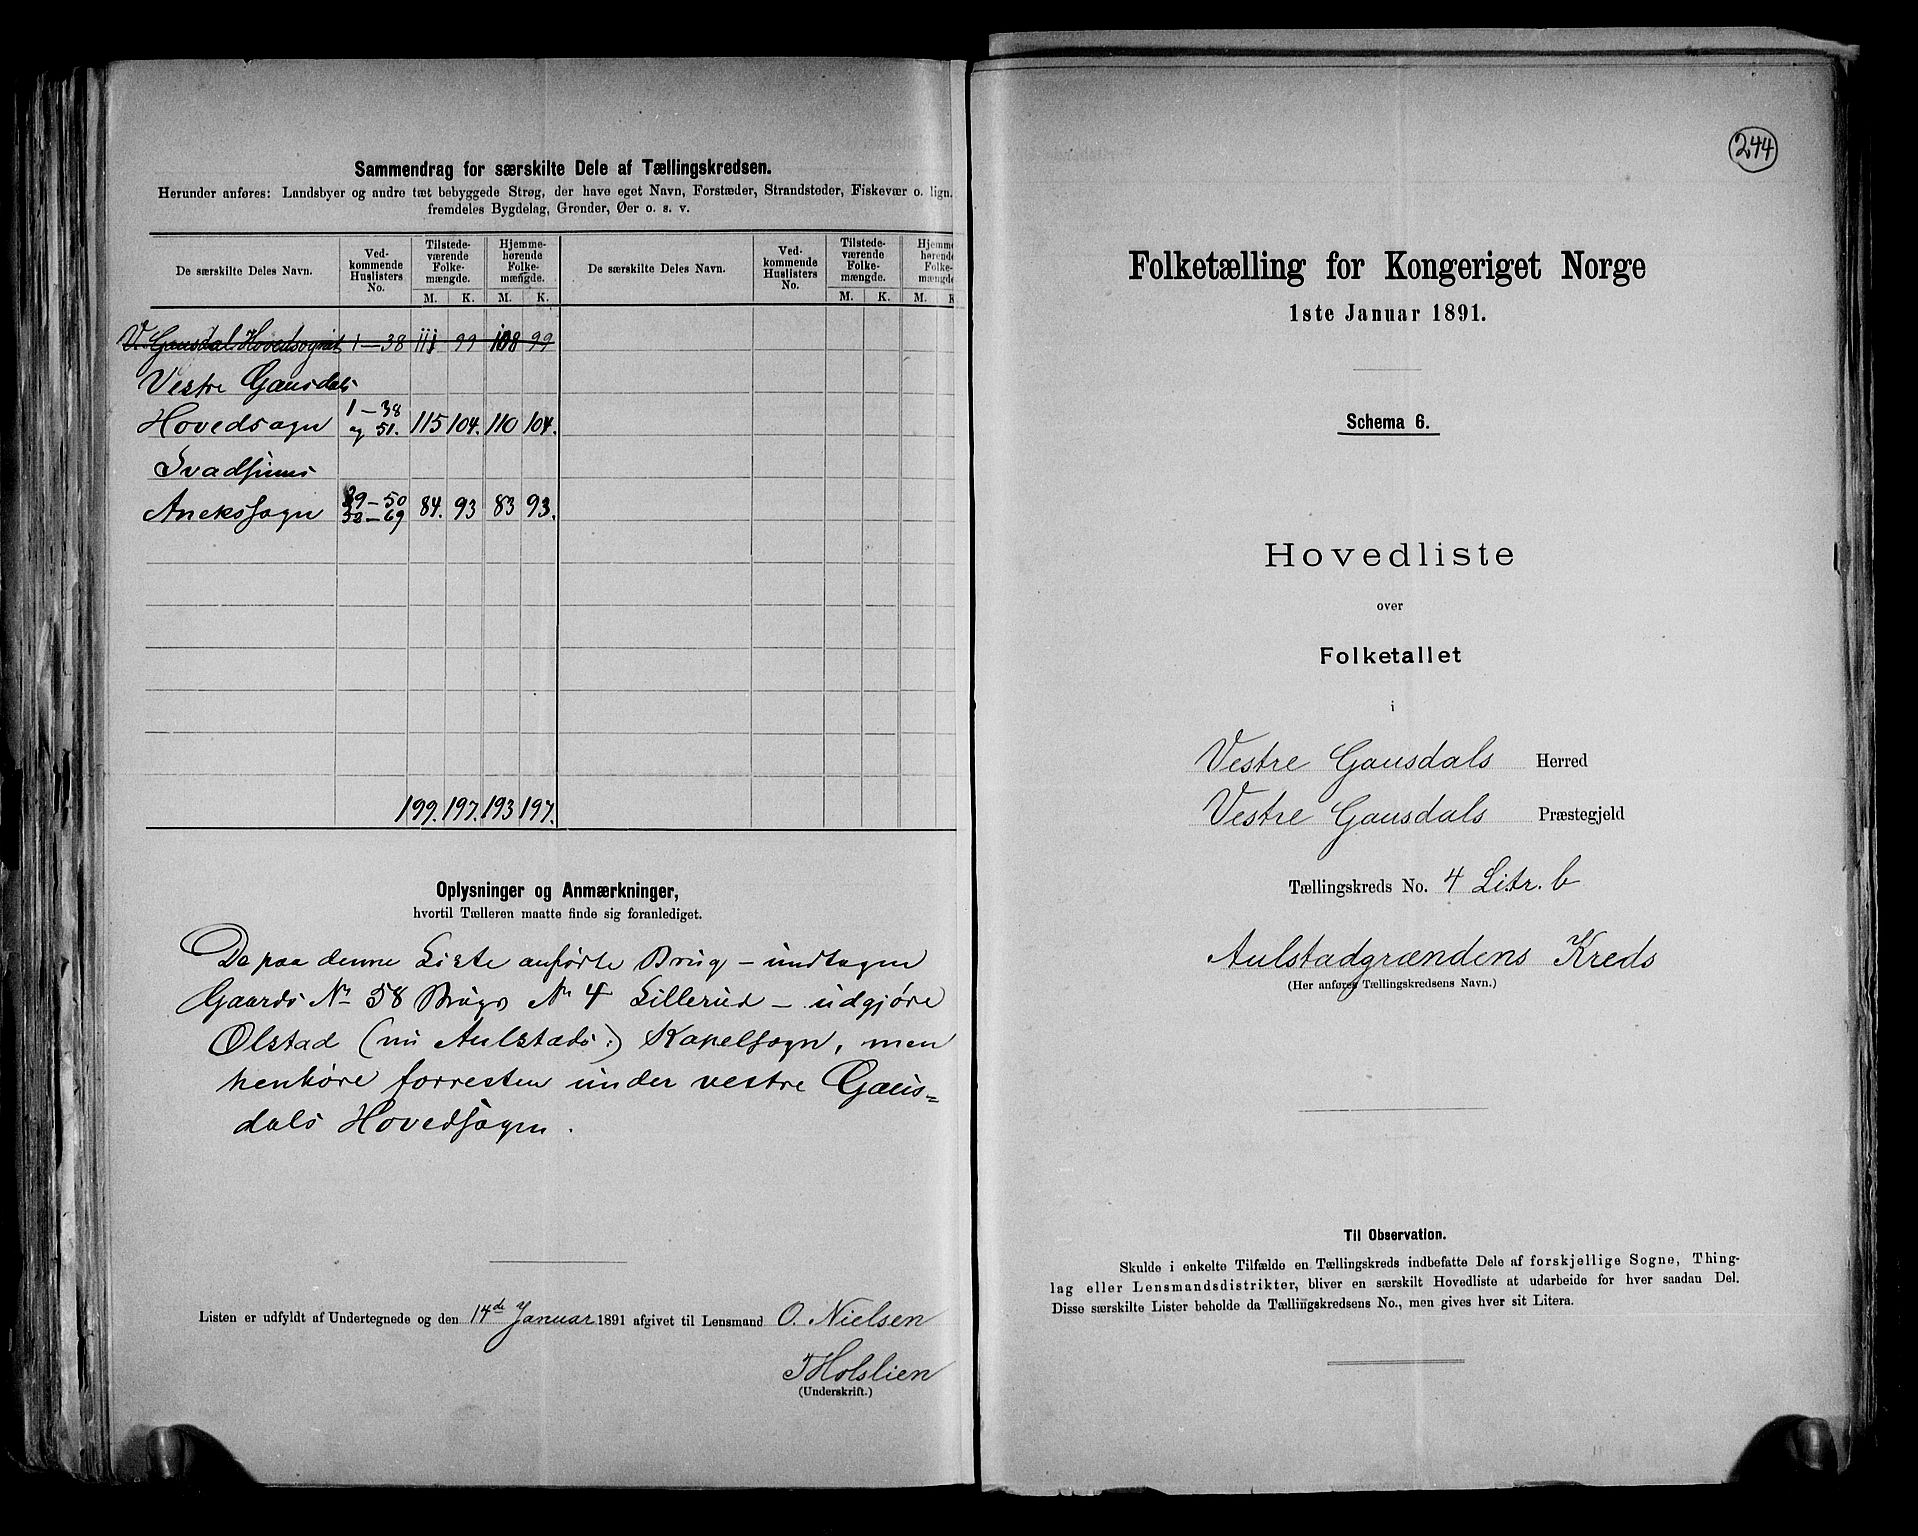 Sammendrag for særskilte Dele af Tællingskredsen.
Herunder anføres: Landsbyer og andre tæt bebyggede Strøg, der have eget Navn, Forstæder, Strandsteder, Fiskevær o. lign.
fremdeles Bygdelag, Grender, Øer o. s. v.
De særskilte Deles Navn. Ved-kommende Huslisters No. Tilstede-værende Folke-mængde. Hjemme-hørende Folke-mængde. De særskilte Deles Navn. Ved-kommende Huslisters No. Tilstede-værende Folke-mængde. Hjemme-hørende Folke-mængde
M. K. M. K. M. K. M. K
V. Gausdal Hovedsogn 1–38 111 99 108 99
Vestre Gausdals
Hovedsogn 1–38 og 51. 115 104. 110 104.
Svadsums
Annekssogn 39–50 52–69 84. 93 83 93.
199. 197. 193 197.
Oplysninger og Anmærkninger,
hvortil Tælleren maatte finde sig foranlediget.
De paa denne Liste anførte Brug – undtagen
Gaards No 58 Brugs No 4 Lillerud – udgjøre
Olstad (nu Aulstads:) Kapelsogn, men
henhøre forresten under vestre Gaus=
dals Hovedsogn.
Listen er udfyldt af Undertegnede og den 14de Januar 1891 afgivet til Lensmand O. Nielsen
T Holslien
(Underskrift.)
244
Folketælling for Kongeriget Norge
1ste Januar 1891.
Schema 6.
Hovedliste
over
Folketallet
i
Vestre Gausdals Herred
Vestre Gausdals Præstegjeld
Tællingskreds No. 4 Litr. b
Aulstadgrændens Kreds
(Her anføres Tællingskredsens Navn.)
Til Observation.
Skulde i enkelte Tilfælde en Tællingskreds indbefatte Dele af forskjellige Sogne, Thing-
lag eller Lensmandsdistrikter, bliver en særskilt Hovedliste at udarbeide for hver saadan Del.
Disse særskilte Lister beholde da Tællingskredsens No., men gives hver sit Litera.